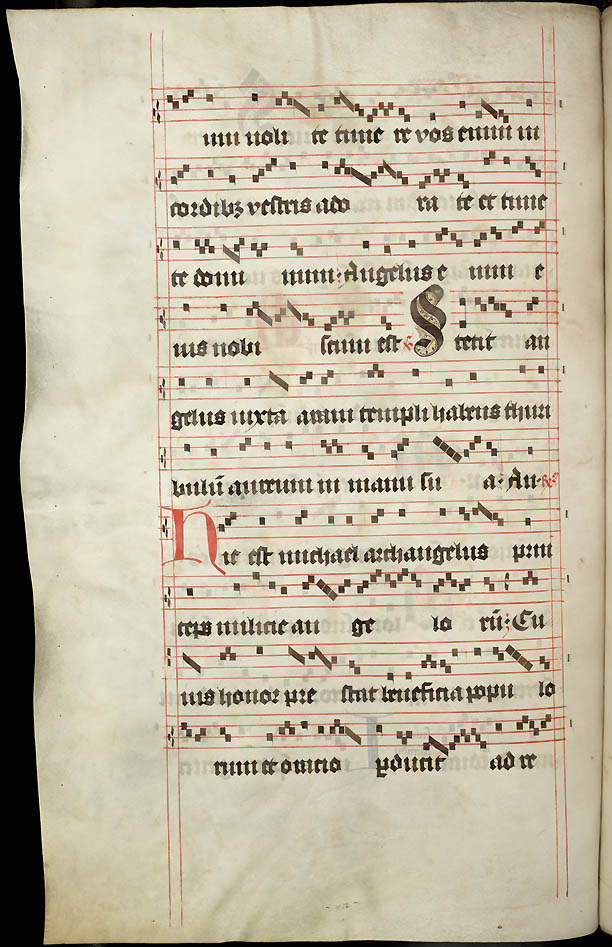 um noli te time re vos enim in
cordibꝫ vestris ado ra te et time
te domi num: Angelus e nim e
ius nobi scum est ℣ Stetit an
gelus iuxta aram templi habens thuri
bulū aureum in manu su a. An.
Hic est michael archangelus prin
ceps milicie an ge lo rū: Cu
ius honor pre stat beneficia popu lo
rum et oracio ꝑducit ad re